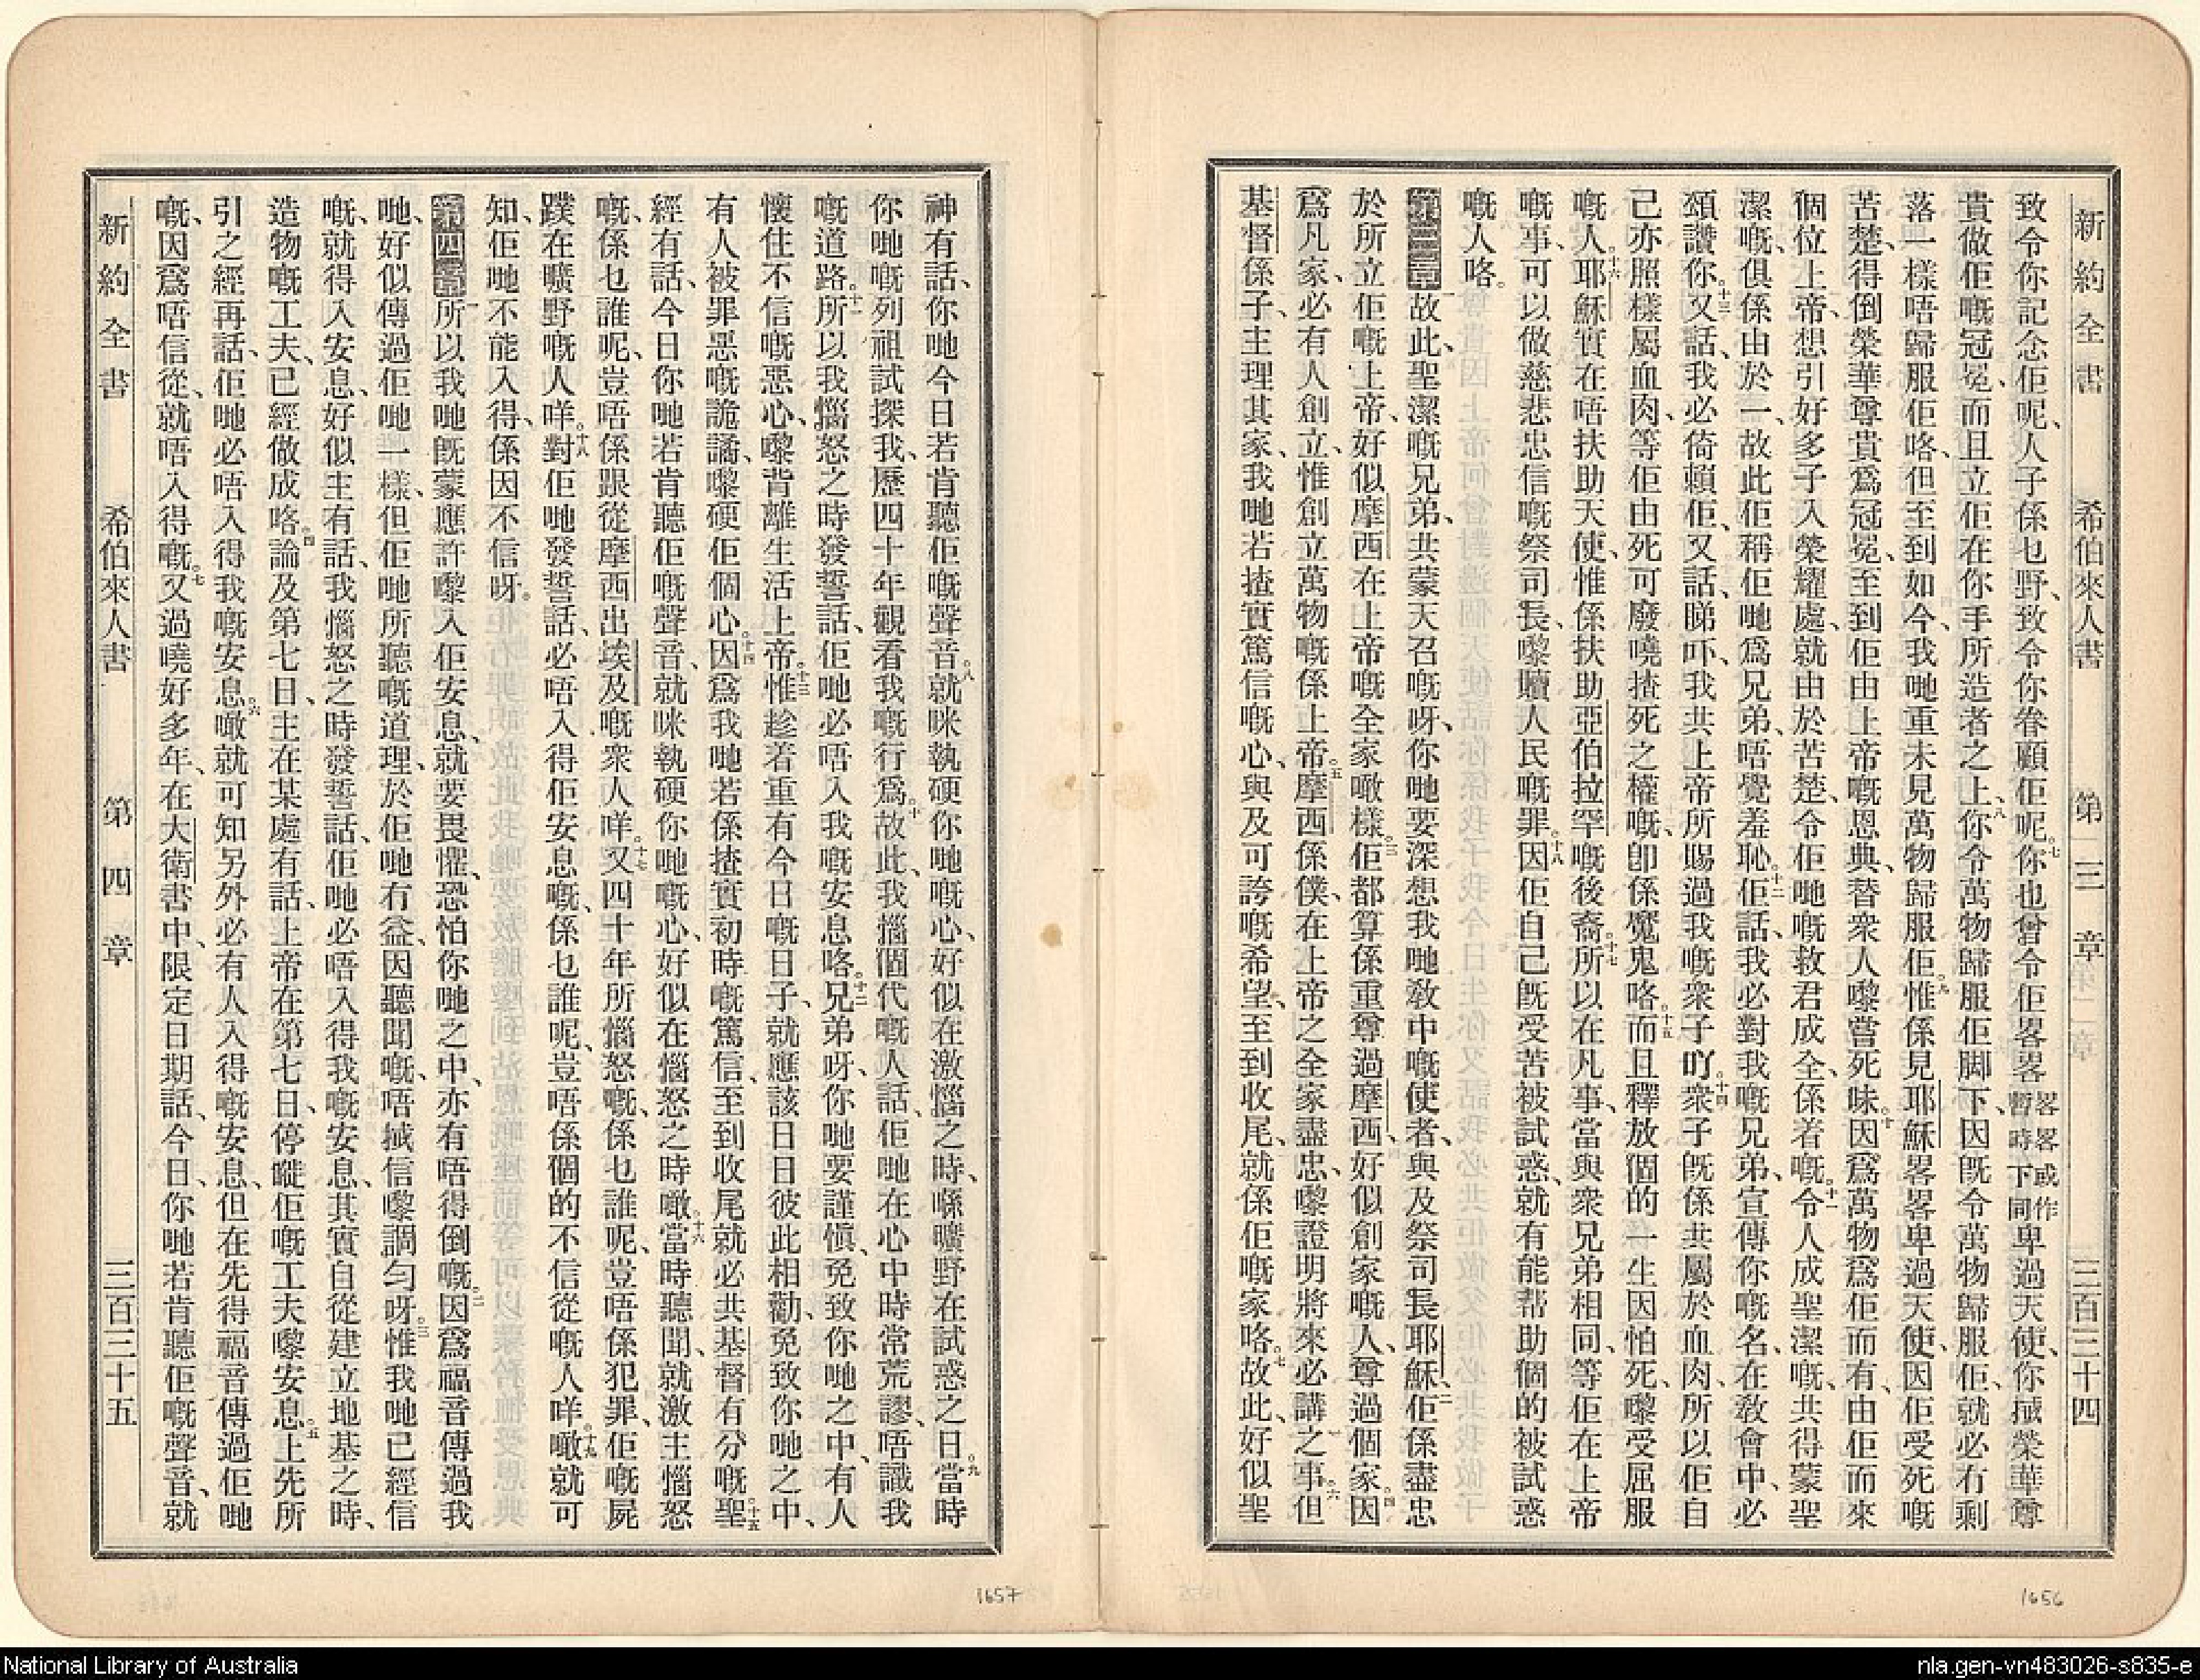 新約全書 希伯來人書 第三章 三百三十四
致令你記念佢呢、人子係乜野、致令你眷顧佢呢。七你也曾令佢畧畧畧畧或作暫時下同卑過天使、你搣榮華尊
貴做佢嘅冠冕、而且立佢在你手所造者之上、八你令萬物歸服佢脚下、因旣令萬物歸服佢、就必有剩
落一樣唔歸服佢咯、但至到如今、我哋重未見萬物歸服佢。九惟係見耶穌畧畧卑過天使、因佢受死嘅
苦楚、得倒榮華尊貴爲冠冕、至到佢由上帝嘅恩典、替衆人嚟嘗死味。十因爲萬物爲佢而有、由佢而來
個位上帝、想引好多子入榮耀處、就由於苦楚、令佢哋嘅救君成全、係着嘅。十一令人成聖潔嘅、共得蒙聖
潔嘅、俱係由於一、故此佢稱佢哋爲兄弟、唔覺羞恥。十二佢話、我必對我嘅兄弟、宣傳你嘅名、在敎會中、必
頌讚你。十三又話、我必倚賴佢、又話、睇吓、我共上帝所賜過我嘅衆子吖。十四衆子旣係共屬於血肉、所以佢自
己亦照樣屬血肉、等佢由死可廢嘵揸死之權嘅、卽係魔鬼咯。十五而且釋放個的一生因怕死、嚟受屈服
嘅人。十六耶穌實在唔扶助天使、惟係扶助亞伯拉罕嘅後裔。十七所以在凡事、當與衆兄弟相同、等佢在上帝
嘅事、可以做慈悲忠信嘅祭司長、嚟贖人民嘅罪。十八因佢自己旣受苦被試惑、就有能幇助個的被試惑
嘅人咯。
第三章一故此、聖潔嘅兄弟、共蒙天召嘅呀、你哋要深想我哋敎中嘅使者、與及祭司長耶穌、二佢係盡忠
於所立佢嘅上帝、好似摩西在上帝嘅全家噉樣。三佢都算係重尊過摩西、好似創家嘅人、尊過個家。四因
爲凡家、必有人創立、惟創立萬物嘅係上帝。五摩西係僕、在上帝之全家盡忠、嚟證明將來必講之事。六但
基督係子、主理其家、我哋若揸實篤信嘅心、與及可誇嘅希望、至到收尾、就係佢嘅家咯。七故此、好似聖
神有話、你哋今日若肯聽佢嘅聲音。八就咪執硬你哋嘅心、好似在激惱之時、喺曠野在試惑之日。九當時
你哋嘅列祖試探我、歷四十年觀看我嘅行爲。十故此、我惱個代嘅人話、佢哋在心中時常荒謬、唔識我
嘅道路。十一所以我惱怒之時發誓話、佢哋必唔入我嘅安息咯。十二兄弟呀、你哋要謹愼、免致你哋之中、有人
懷住不信嘅惡心、嚟背離生活上帝。十三惟趁着重有今日嘅日子、就應該日日彼此相勸、免致你哋之中、
有人被罪惡嘅詭譎、嚟硬佢個心。十四因爲我哋若係揸實初時嘅篤信、至到收尾、就必共基督有分嘅。十五聖
經有話、今日你哋若肯聽佢嘅聲音、就咪執硬你哋嘅心、好似在惱怒之時噉。十六當時聽聞、就激主惱怒
嘅、係乜誰呢、豈唔係跟從摩西出埃及嘅衆人咩。十七又四十年所惱怒嘅、係乜誰呢、豈唔係犯罪、佢嘅屍
蹼在曠野嘅人咩。十八對佢哋發誓話、必唔入得佢安息嘅、係乜誰呢、豈唔係個的不信從嘅人咩。十九噉就可
知、佢哋不能入得、係因不信呀。
第四章一所以我哋旣蒙應許嚟入佢安息、就要畏懼、恐怕你哋之中、亦有唔得倒嘅。二因爲福音傳過我
哋、好似傳過佢哋一樣、但佢哋所聽嘅道理、於佢哋冇益、因聽聞嘅、唔搣信嚟調匀呀。三惟我哋已經信
嘅、就得入安息、好似主有話、我惱怒之時發誓話、佢哋必唔入得我嘅安息、其實自從建立地基之時、
造物嘅工夫、已經做成咯。四論及第七日、主在某處有話、上帝在第七日、停嘥佢嘅工夫嚟安息。五上先所
引之經再話、佢哋必唔入得我嘅安息。六噉就可知另外必有人入得嘅安息、但在先得福音傳過佢哋
嘅、因爲唔信從、就唔入得嘅。七又過嘵好多年、在大衛書中、限定日期話、今日、你哋若肯聽佢嘅聲音、就
新約全書 希伯來人書 第四章 三百三十五
1657
1656
National Library of Australia
nla.gen-vn483026-s835-e